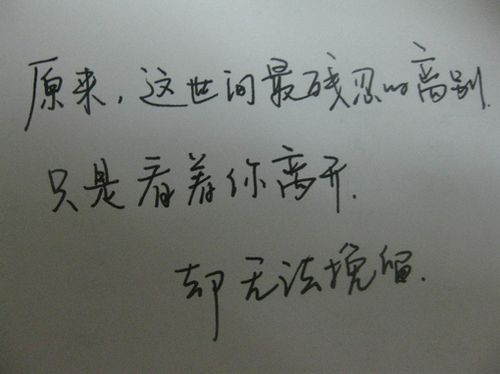 原来，这世间最残忍的离别.
只是看着你离开.
却无法挽留.